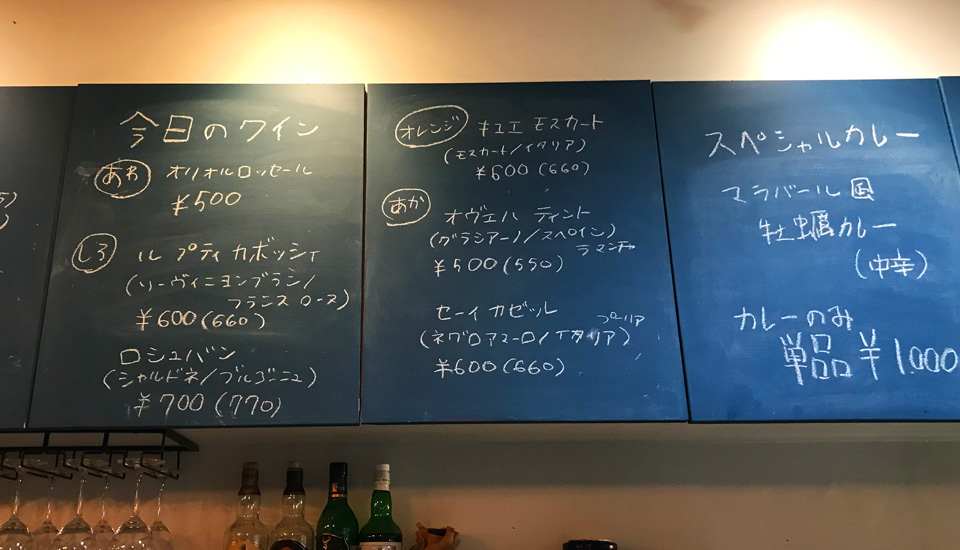 今日のワイン
あわ オリオルロッセール
¥500
しろ ル プティ カボッシュ
(ソーヴィニヨンブラン/
フランス ロース)
¥600(660)
ロシュバン
(シャルドネ/ブルゴーニュ)
¥700(770)
オレンジ キュエ モスカート
(モスカート/イタリア)
¥600(660)
あか オヴェハ ティント
(グラシアーノ/スペイン)
ラマンチャ
¥500(550)
セーイ カゼッル
プーリア
(ネグロアマーロ/イタリア)
¥600(660)
スペシャルカレー
マラバール風
牡蠣カレー
(中辛)
カレーのみ
単品 ¥1,000